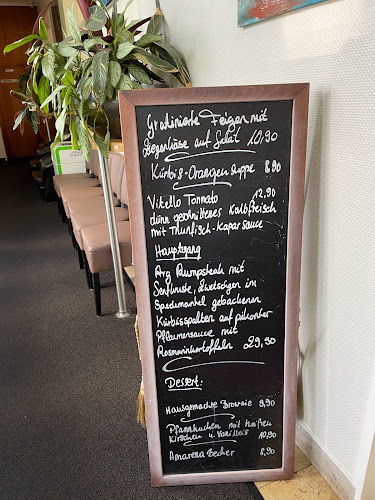 Gratinierte Feigen mit
Ziegenkäse auf Salat 10,90
Kürbis-Orangensuppe 8,90
Vitello Tonnato 12,90
dünn geschnittenes Kalbfleisch
mit Thunfisch-Kapernsauce
Hauptgang
Arg Rumpsteak mit
Senfkruste, Zwetschgen im
Speckmantel gebackenen
Kürbisspalten auf pikanter
Pflaumensauce mit
Rosmarinkartoffeln 29,90
Dessert:
Hausgemachte Brownie 9,90
Pfannkuchen mit heißen
Kirschen u. Vanilleeis 10,90
Amarena Becher 8,90